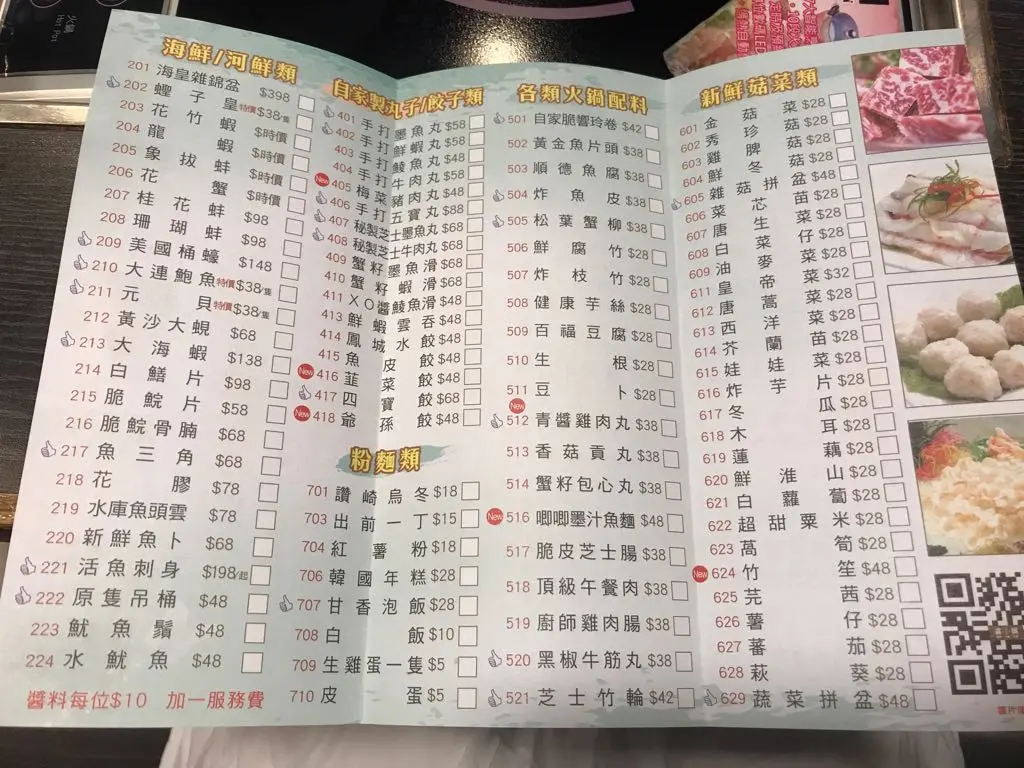 火鍋
Hot Pot
海鮮/河鮮類
201 海皇雜錦盆 $398
202 蟶子皇 特價$38/隻
203 花竹蝦 $時價
204 龍蝦 $時價
205 象拔蚌 $時價
206 花蟹 $時價
207 桂花蚌 $98
208 珊瑚蚌 $98
209 美國桶蠔 $148
210 大連鮑魚 特價$38/隻
211 元貝 特價$38/隻
212 黃沙大蜆 $68
213 大海蝦 $138
214 白鱔片 $98
215 脆鯇片 $58
216 脆鯇骨腩 $68
217 魚三角 $68
218 花膠 $78
219 水庫魚頭雲 $78
220 新鮮魚卜 $68
221 活魚刺身 $198/起
222 原隻吊桶 $48
223 魷魚鬚 $48
224 水魷魚 $48
醬料每位$10 加一服務費
自家製丸子/餃子類
401 手打墨魚丸 $58
402 手打鮮蝦丸 $58
403 手打鯪魚丸 $48
404 手打牛肉丸 $58
New 405 梅菜豬肉丸 $48
406 手打五寶丸 $88
407 秘製芝士墨魚丸 $68
408 秘製芝士牛肉丸 $68
409 蟹籽墨魚滑 $68
410 蟹籽蝦滑 $68
411 XO醬鯪魚滑 $48
413 鮮蝦雲吞 $48
414 鳳城水餃 $48
415 魚皮餃 $48
New 416 韮菜餃 $48
417 四寶餃 $68
New 418 爺孫餃 $48
粉麵類
701 讚崎烏冬 $18
703 出前一丁 $15
704 紅薯粉 $18
706 韓國年糕 $28
707 甘香泡飯 $28
708 白飯 $10
709 生雞蛋一隻 $5
710 皮蛋 $5
各類火鍋配料
501 自家脆響玲卷 $42
502 黃金魚片頭 $38
503 順德魚腐 $38
504 炸魚皮 $38
505 松葉蟹柳 $38
506 鮮腐竹 $28
507 炸枝竹 $28
508 健康芋絲 $28
509 百福豆腐 $28
510 生根 $28
511 豆卜 $28
New
512 青醬雞肉丸 $38
513 香菇貢丸 $38
514 蟹籽包心丸 $38
New 516 唧唧墨汁魚麵 $48
517 脆皮芝士腸 $38
518 頂級午餐肉 $38
519 廚師雞肉腸 $38
520 黑椒牛筋丸 $38
521 芝士竹輪 $42
新鮮菇菜類
601 金菇菜 $28
602 秀珍菇 $28
603 雞脾菇 $28
604 鮮冬菇 $28
605 雜菇拼盆 $48
606 菜芯苗 $28
607 唐生菜 $28
608 白菜仔 $28
609 油麥菜 $28
611 皇帝菜 $32
612 唐蒿菜 $28
613 西洋菜 $28
614 芥蘭苗 $28
615 娃娃菜 $28
616 炸芋片 $28
617 冬瓜 $28
618 木耳 $28
619 蓮藕 $28
620 鮮淮山 $28
621 白蘿蔔 $28
622 超甜粟米 $28
623 萬筍 $28
New 624 竹笙 $48
625 芫茜 $28
626 薯仔 $28
627 蕃茄 $28
628 萩葵 $28
629 蔬菜拼盆 $48